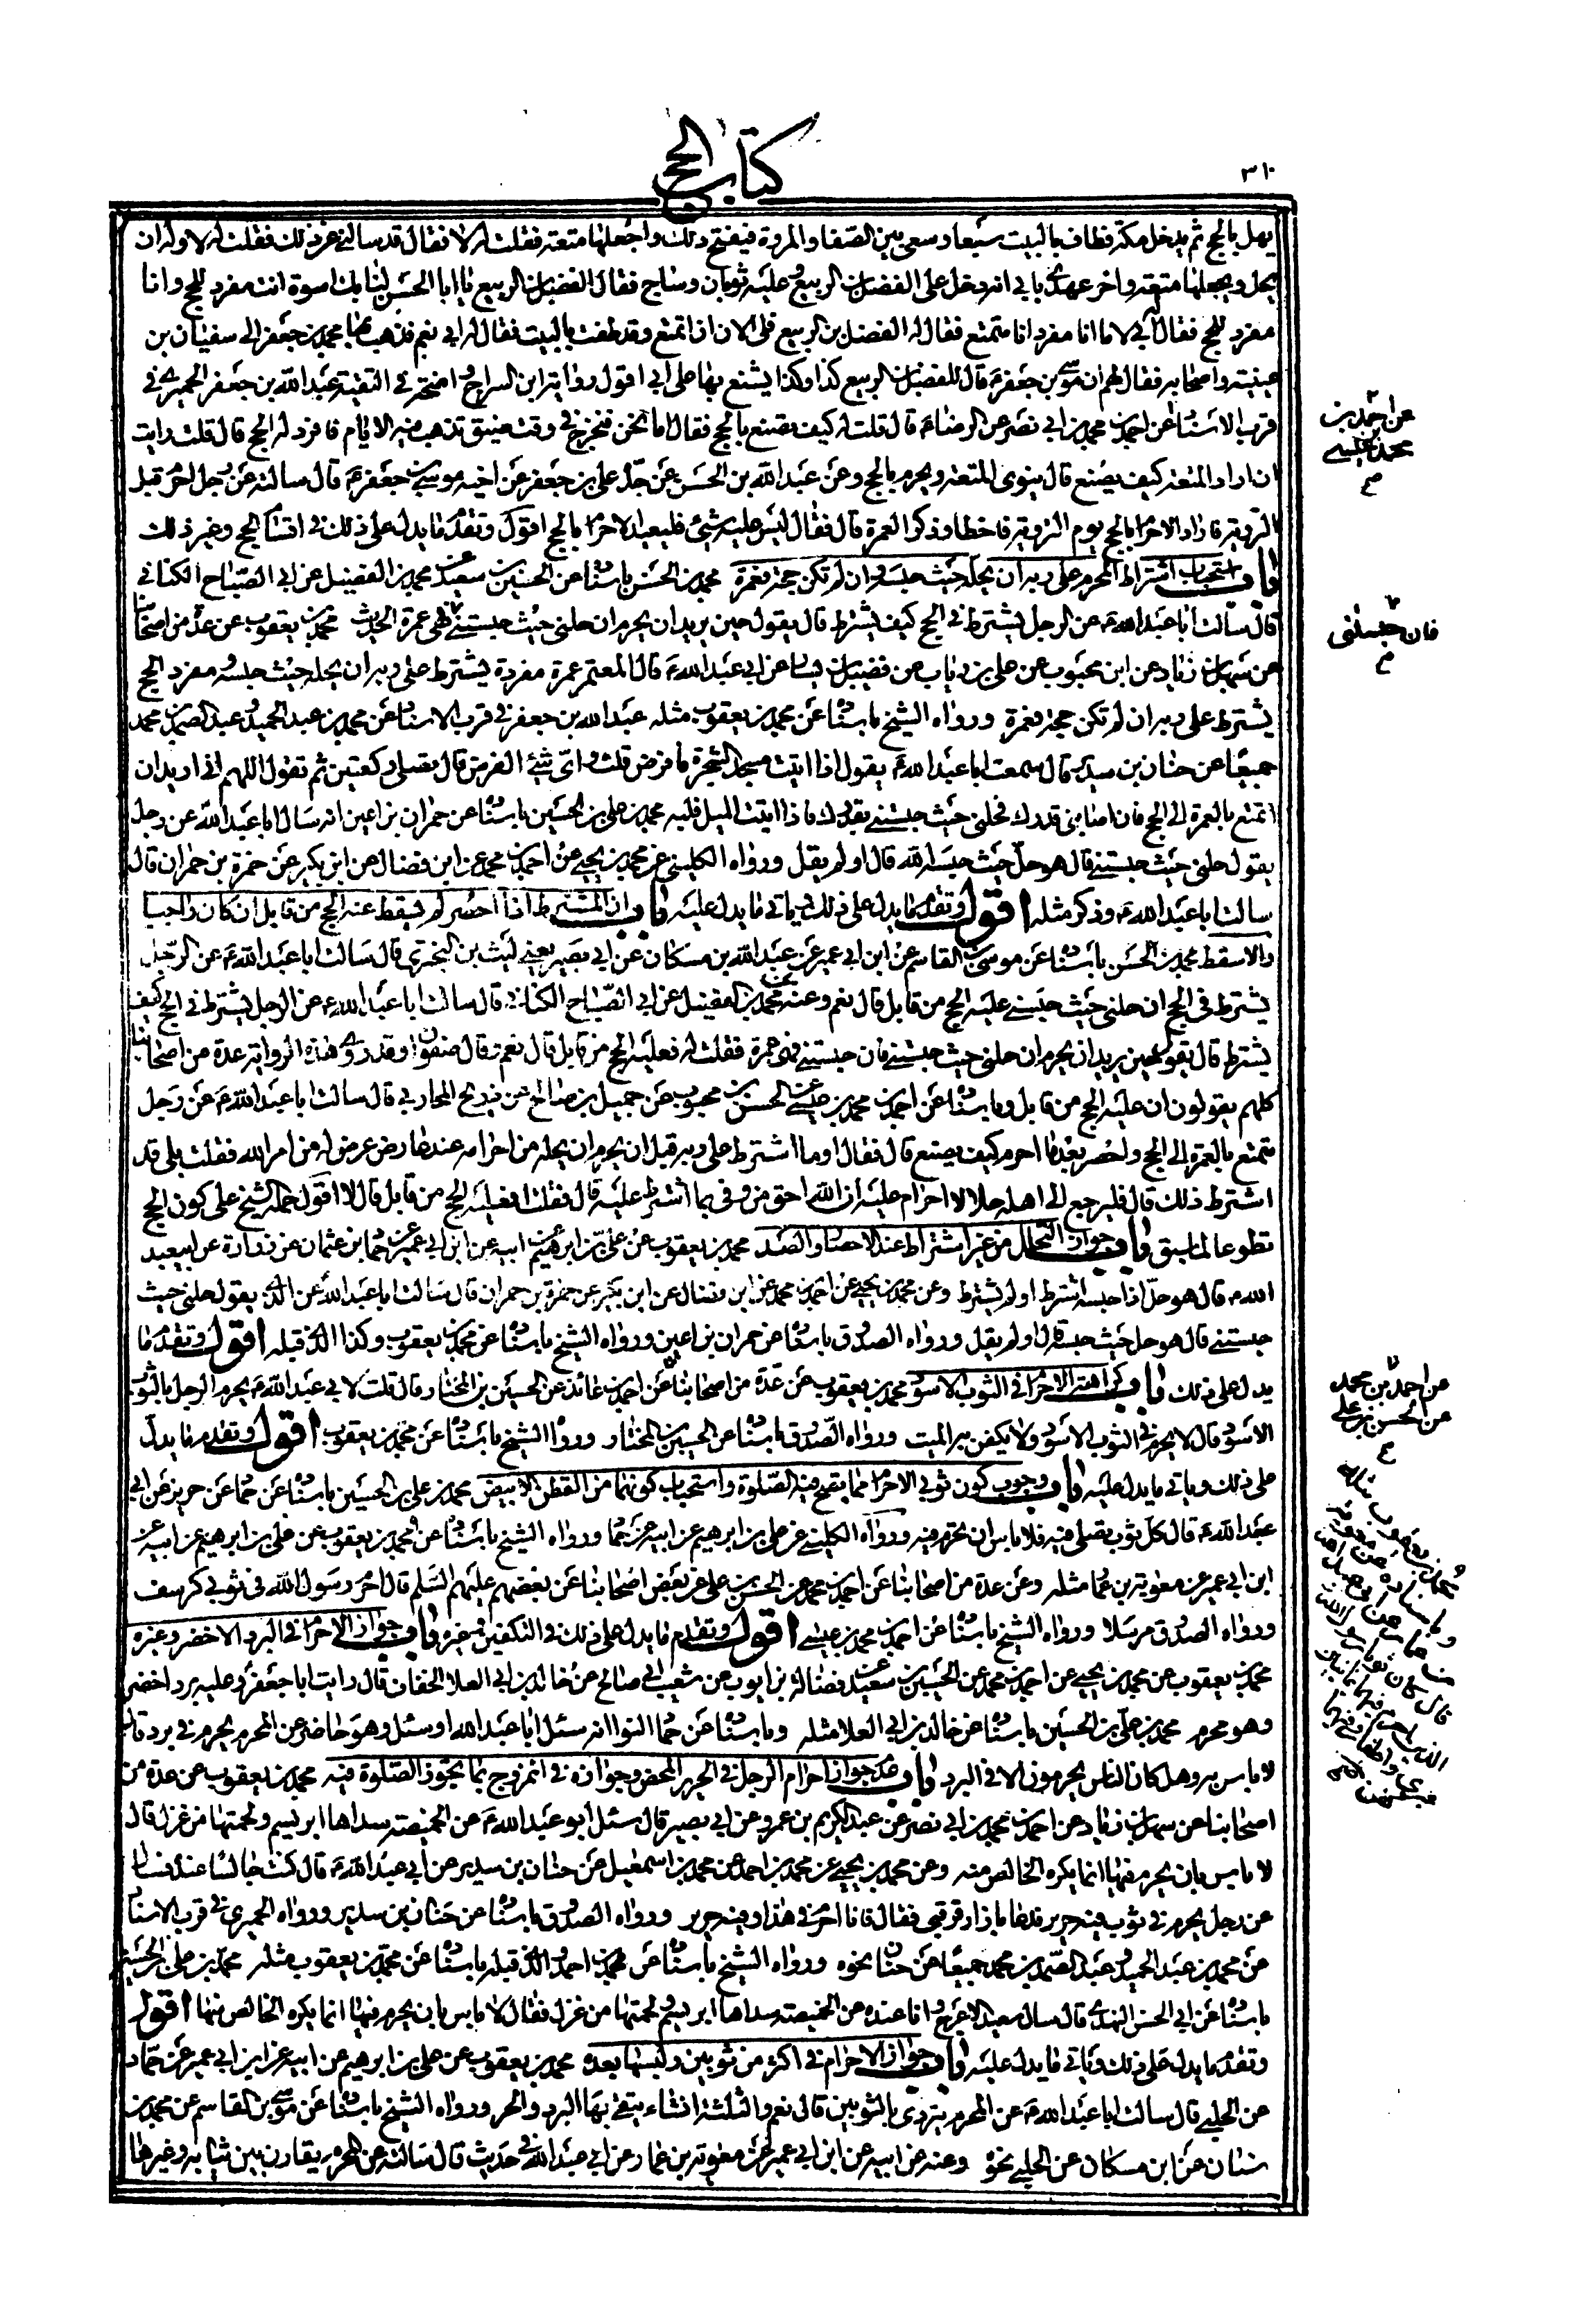 ٣١٠
كتاب الحج
يهل بالحج ثم يدخل مكة فطاف بالبيت سبعا وسعى بين الصفا والمروة فيفسخ ذلك واجعلها متعة فقلت له لا فقال قد سألني عن ذلك فقلت له لا وله ان
يحل ويجعلها متعة واخر عهدي بابي انه دخل على الفضل بن الربيع وعليه ثوبان وساج فقال الفضل بن الربيع يا ابا الحسن لنا بك اسوة انت مفرد للحج وانا
مفرد للحج فقال له ابي لا ما انا مفرد انا متمتع فقال له الفضل بن الربيع فلي الان ان اتمتع وقد طفت بالبيت فقال له ابي نعم فذهب بها محمد بن جعفر الى سفيان بن
عيينة واصحابه فقال لهم ان موسى بن جعفر ع قال للفضل بن الربيع كذا وكذا يشنع بها على ابي اقول رواية ابن السراج واضحة في التقية عبد الله بن جعفر الحميري في
قرب الاسناد عن احمد بن محمد بن ابي نصر عن الرضا ع قال قلت له كيف يصنع بالحج فقال اما نحن فنخرج في وقت ضيق تذهب فيه الايام فافرد له الحج قال قلت رايت
ان اراد المتعة كيف يصنع قال ينوي المتعة ويحرم بالحج وعن عبد الله بن الحسن عن جده علي بن جعفر عن اخيه موسى بن جعفر ع قال سألته عن رجل احرم قبل
التروية فاراد الاحرام بالحج يوم التروية فاخطا وذكر العمرة قال فقال ليس عليه شيء فليعد الاحرام بالحج اقول وتقدم ما يدل على ذلك في اقسام الحج وغير ذلك
باب استحباب اشتراط المحرم على ربه ان يحله حيث حبسه وان لم تكن حجة فعمرة محمد بن الحسن باسناده عن الحسين بن سعيد عن محمد بن الفضيل عن ابي الصباح الكناني
قال سألت ابا عبد الله ع عن الرجل يشترط في الحج كيف يشترط قال يقول حين يريد ان يحرم ان حلني حيث حبستني فهي عمرة الحديث محمد بن يعقوب عن عدة من اصحابنا
عن سهل بن زياد عن ابن محبوب عن علي بن رياب عن فضيل بن يسار عن ابي عبد الله ع قال المعتمر عمرة مفردة يشترط على ربه ان يحله حيث حبسه ومفرد الحج
يشترط على ربه ان لم تكن حجة فعمرة ورواه الشيخ باسناده عن محمد بن يعقوب مثله عبد الله بن جعفر في قرب الاسناد عن محمد بن عبد الحميد وعبد الصمد بن محمد
جميعا عن حنان بن سدير قال سمعت ابا عبد الله ع يقول اذا اتيت مسجد الشجرة فافرض قلت واي شيء الفرض قال تصلي ركعتين ثم تقول اللهم اني اريد ان
اتمتع بالعمرة الى الحج فان اصابني قدرك فحلني حيث حبستني بقدرك فاذا اتيت الميل فلبه محمد بن علي بن الحسين باسناده عن حمران بن اعين انه سال ابا عبد الله عن رجل
يقول حلني حيث حبستني قال هو حل حيث حبسه الله قال اولم يقل ورواه الكليني عن محمد بن يحيى عن احمد بن محمد عن ابن فضال عن ابن بكير عن حمزة بن حمران قال
سالت ابا عبد الله ع وذكر مثله اقول وتقدم ما يدل على ذلك وياتي ما يدل عليه باب ان المشترط اذا احصر لم يسقط عنه الحج من قابل ان كان واجبا
والا سقط محمد بن الحسن باسناده عن موسى بن القاسم عن ابن ابي عمير عن عبد الله بن مسكان عن ابي بصير يعني ليث بن البختري قال سالت ابا عبد الله ع عن الرجل
يشترط في الحج ان حلني حيث حبستني عليه الحج من قابل قال نعم وعنه عن محمد بن الفضيل عن ابي الصباح الكناني قال سالت ابا عبد الله ع عن الرجل يشترط في الحج كيف
يشترط قال يقول حين يريد ان يحرم ان حلني حيث حبستني فان حبستني فهي عمرة فقلت له فعليه الحج من قابل قال نعم قال صفوان وقد روى هذه الرواية عدة من اصحابنا
كلهم يقولون ان عليه الحج من قابل وباسناده عن احمد بن محمد بن عيسى عن الحسن بن محبوب عن جميل بن صالح عن ذريح المحاربي قال سالت ابا عبد الله ع عن رجل
متمتع بالعمرة الى الحج واحصر بعد ما احرم كيف يصنع قال فقال اوما اشترط على ربه قبل ان يحرم ان يحله من احرامه عند عارض عرض له من امر الله فقلت بلى قد
اشترط ذلك قال فليرجع الى اهله حلالا لا احرام عليه ان الله احق من وفى بما اشترط عليه قال فقلت افعليه الحج من قابل قال لا اقول حمله الشيخ على كون الحج
تطوعا لما سبق باب جواز التحلل من غير اشتراط عند الاحصار والصد محمد بن يعقوب عن علي بن ابرهيم عن ابيه عن ابن ابي عمير عن حماد بن عثمان عن زرارة عن ابي عبد
الله ع قال هو حل اذا حبسه اشترط او لم يشترط وعن محمد بن يحيى عن احمد بن محمد عن ابن فضال عن ابن بكير عن حمزة بن حمران قال سالت ابا عبد الله عن الذي يقول حلني حيث
حبستني قال هو حل حيث حبسه قال اولم يقل ورواه الصدوق باسناده عن حمران بن اعين ورواه الشيخ باسناده عن محمد بن يعقوب وكذا الذي قبله اقول وتقدم ما
يدل على ذلك باب كراهة الاحرام في الثوب الاسود محمد بن يعقوب عن عدة من اصحابنا عن احمد بن عائذ عن الحسين بن المختار قال قلت لابي عبد الله ع يحرم الرجل بالثوب
الاسود قال لا يحرم في الثوب الاسود ولا يكفن به الميت ورواه الصدوق باسناده عن الحسين بن المختار ورواه الشيخ باسناده عن محمد بن يعقوب اقول وتقدم ما يدل
على ذلك وياتي ما يدل عليه باب وجوب كون ثوبي الاحرام مما يصح فيه الصلوة واستحباب كونهما من القطن الابيض محمد بن علي بن الحسين باسناده عن حماد عن حريز عن ابي
عبد الله ع قال كل ثوب تصلى فيه فلا باس ان تحرم فيه ورواه الكليني عن علي بن ابراهيم عن ابيه عن حماد ورواه الشيخ باسناده عن محمد بن يعقوب عن علي بن ابرهيم عن ابيه عن
ابن ابي عمير عن معوية بن عمار مثله وعن عدة من اصحابنا عن احمد بن محمد عن الحسن بن علي عن بعض اصحابنا عن بعضهم عليهم السلم قال احرم رسول الله في ثوبي كرسف
ورواه الصدوق مرسلا ورواه الشيخ باسناده عن احمد بن محمد بن عيسى اقول وتقدم ما يدل على ذلك في التكفين وغيره باب جواز الاحرام في البرد الاخضر وغيره
محمد بن يعقوب عن محمد بن يحيى عن احمد بن محمد عن الحسين بن سعيد عن فضالة بن ايوب عن شعيب ابي صالح عن خالد بن ابي العلا الخفاف قال رايت ابا جعفر ع وعليه برد اخضر
وهو محرم محمد بن علي بن الحسين باسناده عن خالد بن ابي العلا مثله وباسناده عن حماد النوا انه سئل ابا عبد الله او سئل وهو حاضر عن المحرم يحرم في برد قال
لا باس به وهل كان الناس يحرمون الا في البرد باب عدم جواز احرام الرجل في الحرير المحض وجوازه في الممزوج بما تجوز الصلوة فيه محمد بن يعقوب عن عدة من
اصحابنا عن سهل بن زياد عن احمد بن محمد بن ابي نصر عن عبد الكريم بن عمرو عن ابي بصير قال سئل ابو عبد الله ع عن الخميصة سداها ابريسم ولحمتها من غزل قال
لا باس بان يحرم فيها انما يكره الخالص منه وعن محمد بن يحيى عن محمد بن احمد عن محمد بن اسمعيل عن حنان بن سدير عن ابي عبد الله ع قال كنت جالسا عنده فساله
عن رجل يحرم في ثوب فيه حرير فدعا بازار قرقبي فقال فانا احرم في هذا وفيه حرير ورواه الصدوق باسناده عن حنان بن سدير ورواه الحميري في قرب الاسناد
عن محمد بن عبد الحميد وعبد الصمد بن محمد جميعا عن حنان نحوه ورواه الشيخ باسناده عن محمد بن احمد والذي قبله باسناده عن محمد بن يعقوب مثله محمد بن علي بن الحسين
باسناده عن ابي الحسن النهدي قال سال سعيد الاعرج وانا عنده عن الخميصة سداها ابريسم ولحمتها من غزل فقال لا باس بان يحرم فيها انما يكره الخالص منها اقول
وتقدم ما يدل على ذلك وياتي ما يدل عليه باب جواز الاحرام في اكثر من ثوبين ولبسها بعده محمد بن يعقوب عن علي بن ابرهيم عن ابيه عن ابن ابي عمير عن حماد
عن الحلبي قال سالت ابا عبد الله ع عن المحرم يتردى بالثوبين قال نعم والثلثة ان شاء يتقي بها البرد والحر ورواه الشيخ باسناده عن موسى بن القاسم عن محمد بن
سنان عن ابن مسكان عن الحلبي نحوه وعنه عن ابيه عن ابن ابي عمير عن معوية بن عمار عن ابي عبد الله في حديث قال سالته عن المحرم يقارن بين ثيابه وغيرها
عن احمد بن
محمد بن عيسى
فان حبستني
عن احمد بن محمد
عن الحسن بن علي